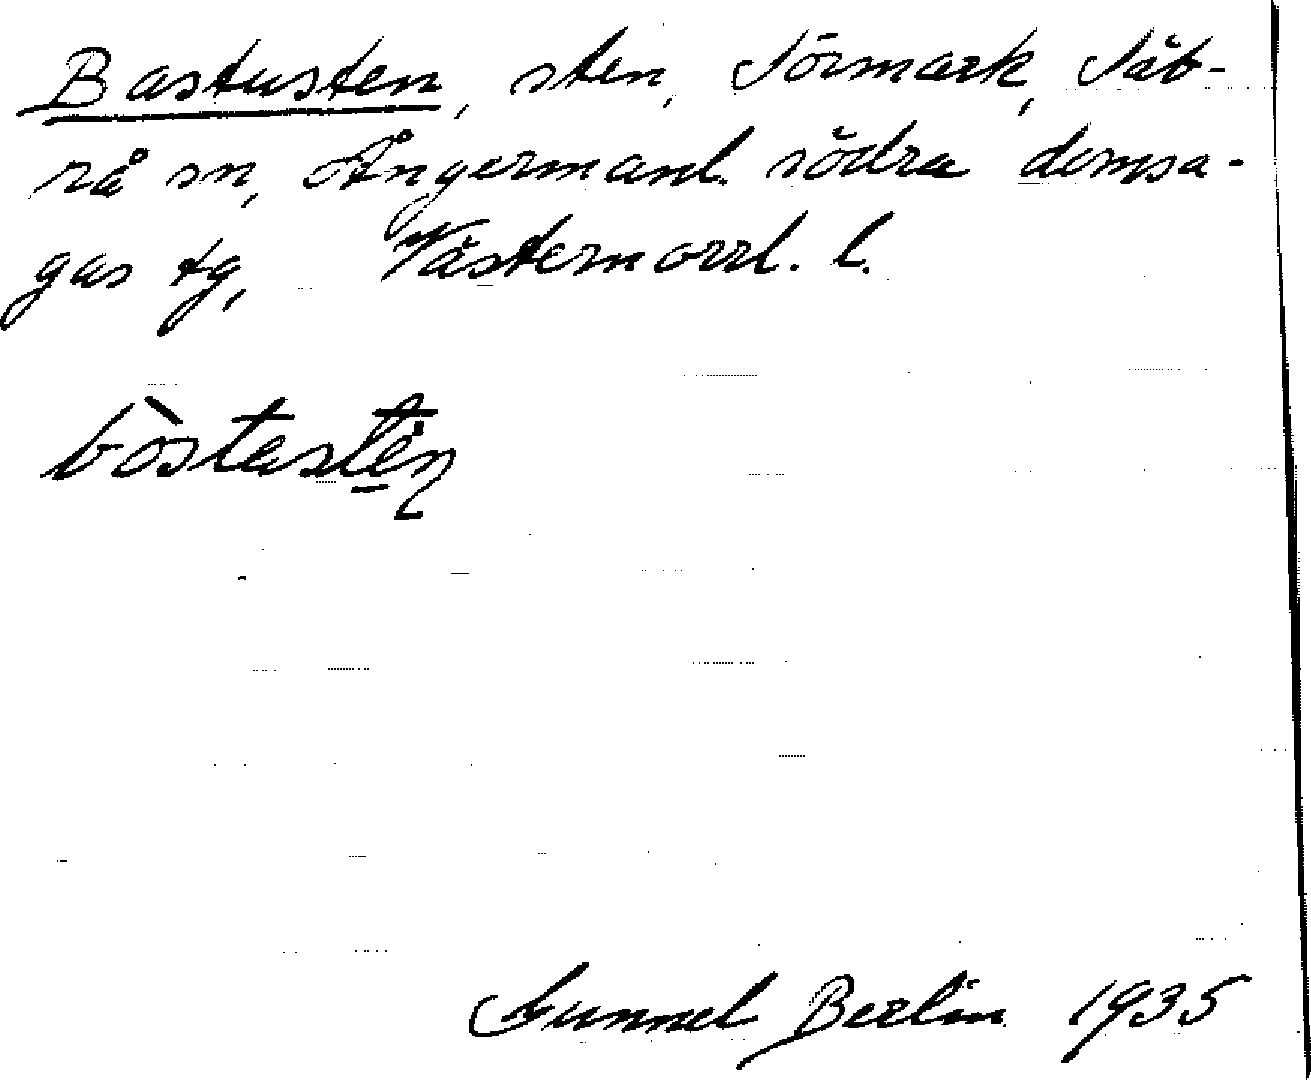 Bastusten, sten, Sörmark, Säb-
rå sn, Ångermanl. södra domsa-
gas tg, Västernorrl. l.
bòstastèn
Gunnel Berlin 1935